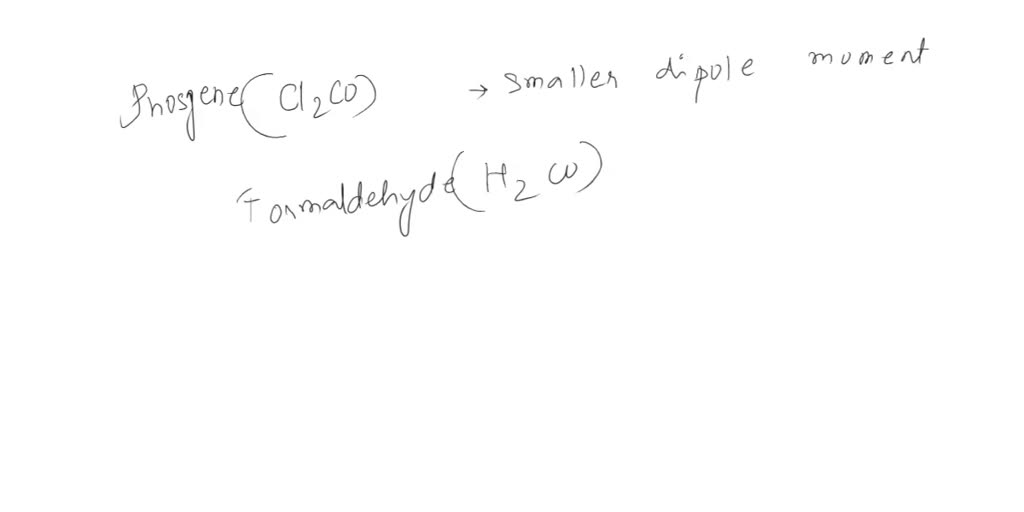 Phosgene (Cl₂CO) → smaller dipole moment
Formaldehyde (H₂CO)